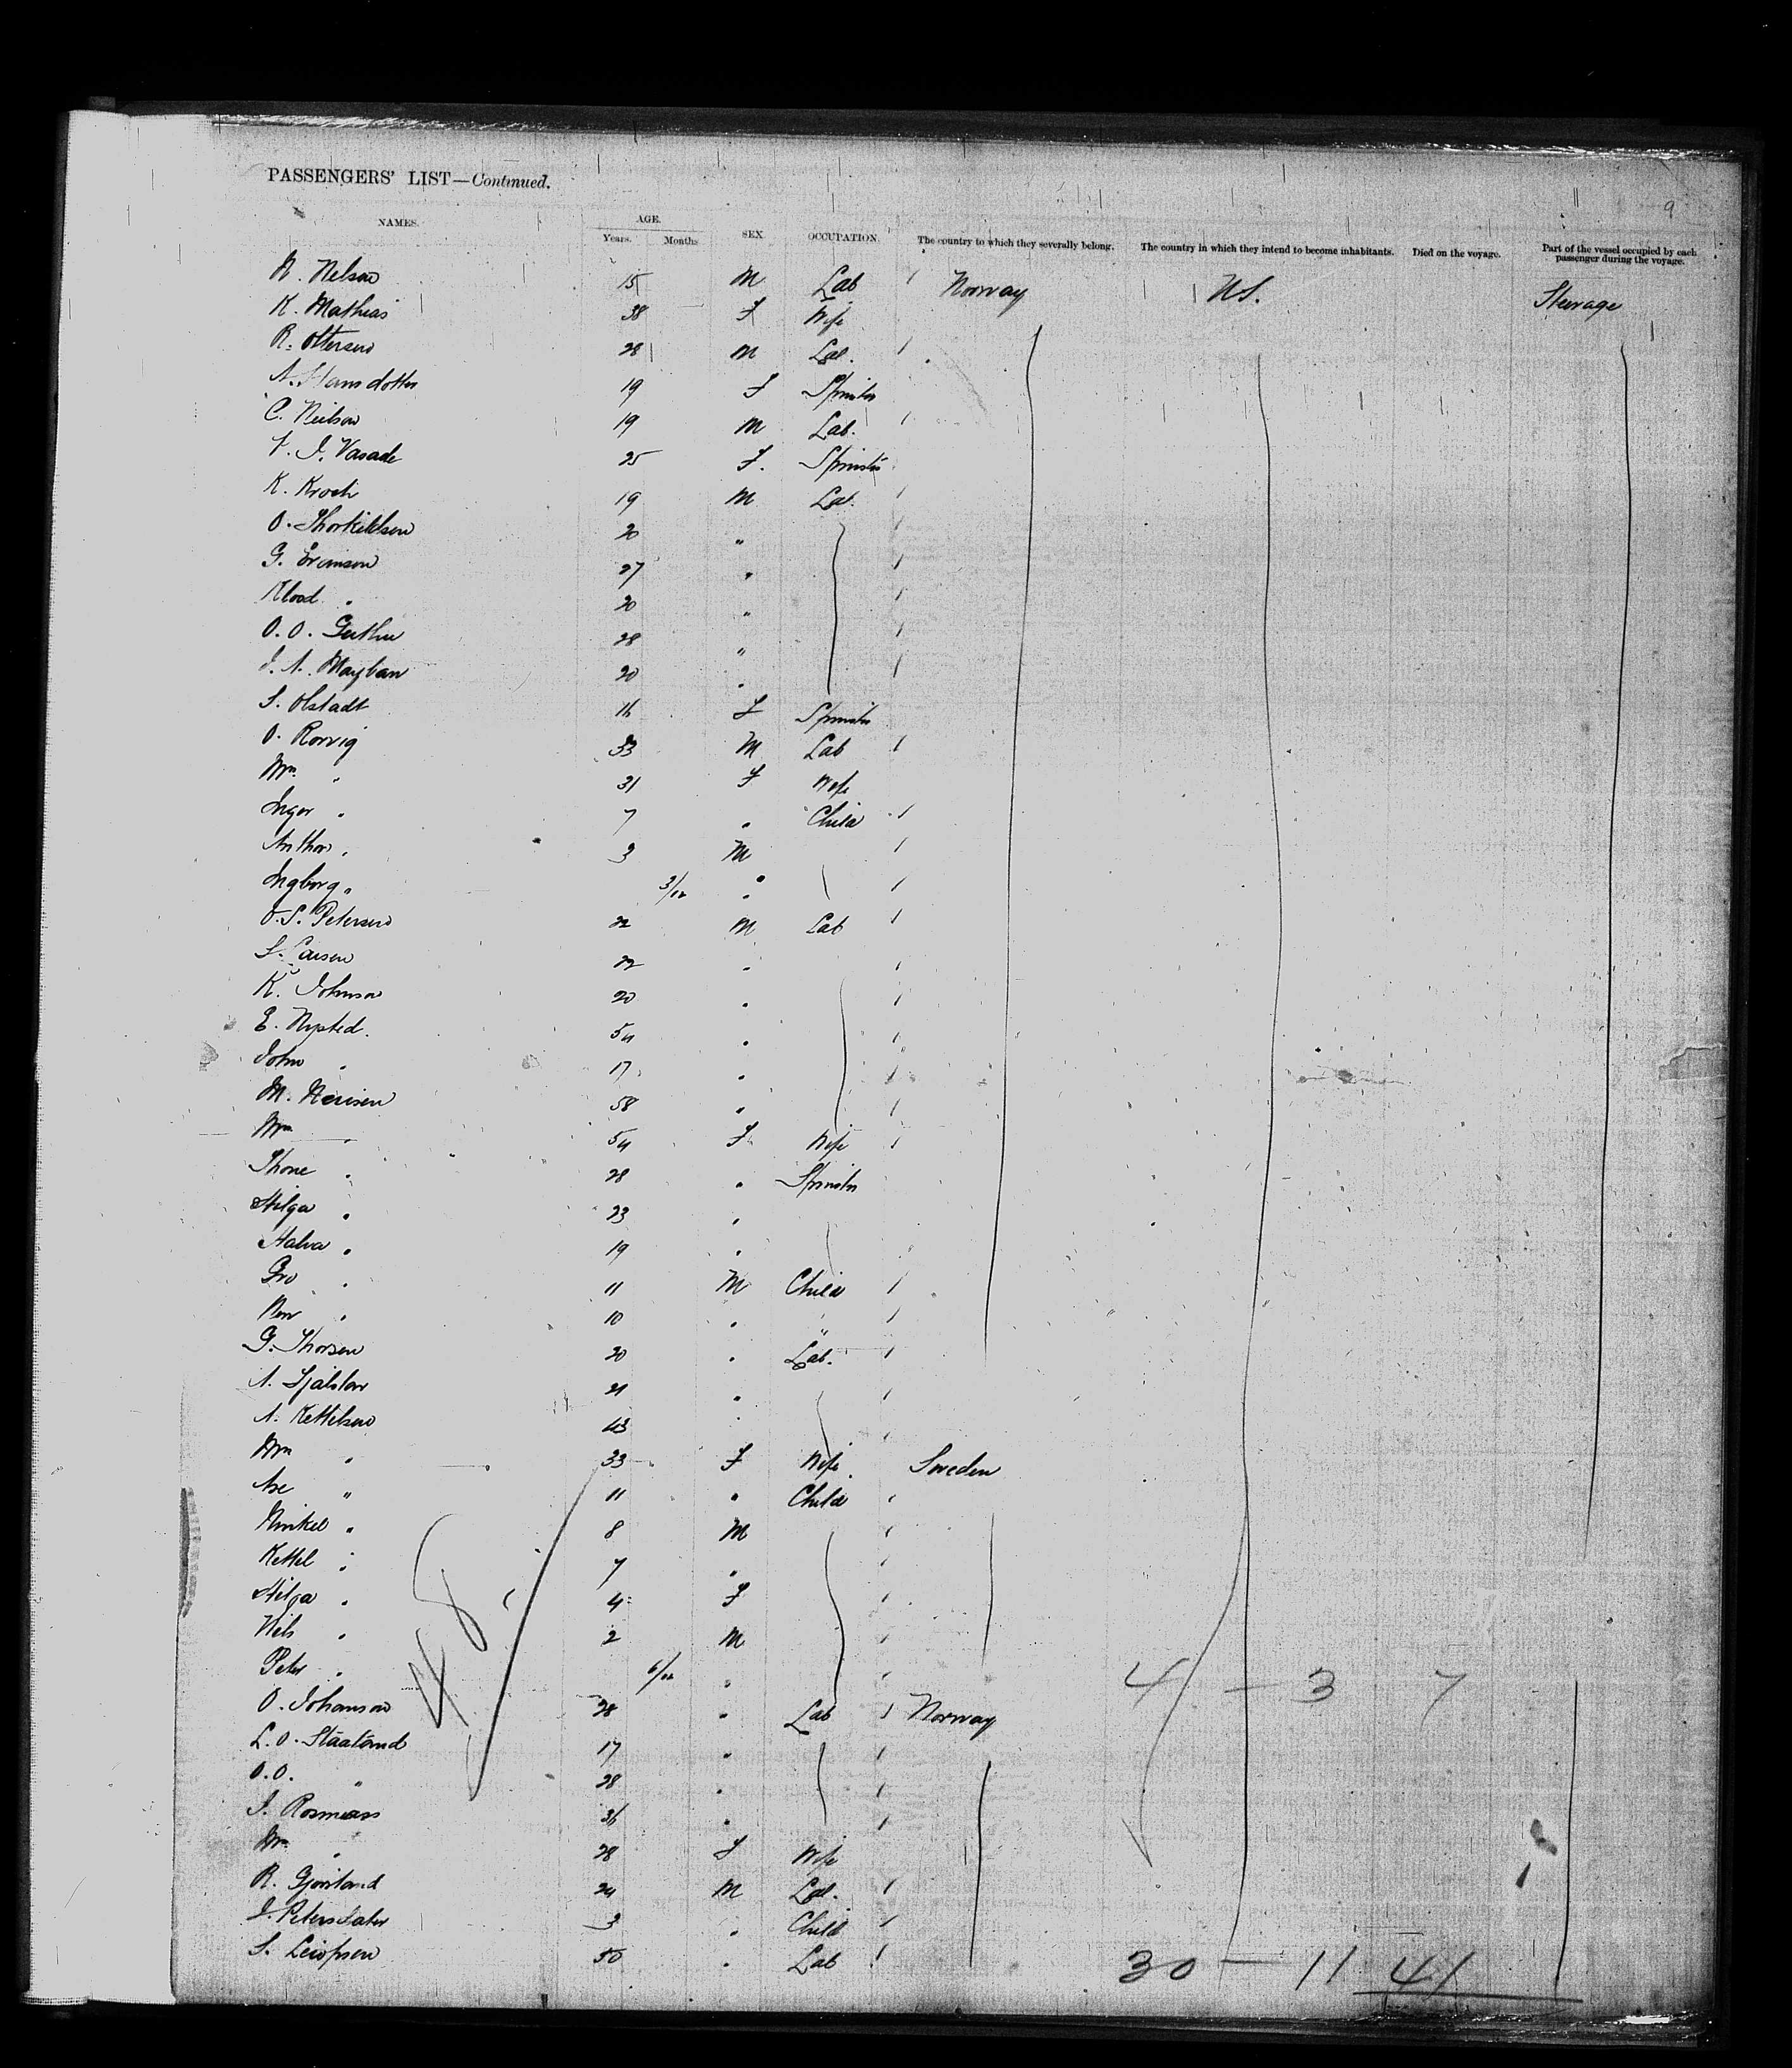 9
PASSENGERS' LIST—Continued.
NAMES. AGE. Years. Months SEX OCCUPATION. The country to which they severally belong. The country in which they intend to become inhabitants. Died on the voyage. Part of the vessel occupied by each passenger during the voyage.
N. Nelson 15 M Lab Norway US. Steerage
K. Mathias 38 F Wife
R. Ottersen 28 M Lab.
A. Hansdotter 19 F Spinster
C. Neilson 19 M Lab.
25 F. Spinster
K. 19 M Lab.
O. Thorkildsen 20 "
G. 27 "
20 "
O. O. 28 "
20 "
S. Olstadt 16 F Spinster
O. Rorvig 33 M Lab
Mrs. " 31 F Wife
Inger " 7 " Child
3 M
Ingborg " 3/12 "
O. S. Petersen 22 M Lab
S. Larsen 22 "
K. Johnson 20 "
E. Nysted. 54 "
John " 17 "
M. 58 "
Mrs " 54 F Wife
Thone " 28 " Spinster
Helga " 23 "
" 19 "
Gro " 11 M Child
" 10 " "
G. Thorsen 20 " Lab.
A. 21 "
A. Kettelsen 43 "
Mrs " 33 F Wife Sweden
" 11 " Child
" 8 M
Kettel " 7 "
Helga " 4 F
Nels " 2 M
Peter " 6/12 "
O. Johanson 28 " Lab Norway
L. O. Staaland 17 "
O. O. " 28 "
36 "
Mrs " 28 F Wife
R. 24 M Lab.
Petersdater 3 " Child
S. 50 " Lab
48
4 — 3 7
30 — 11 41